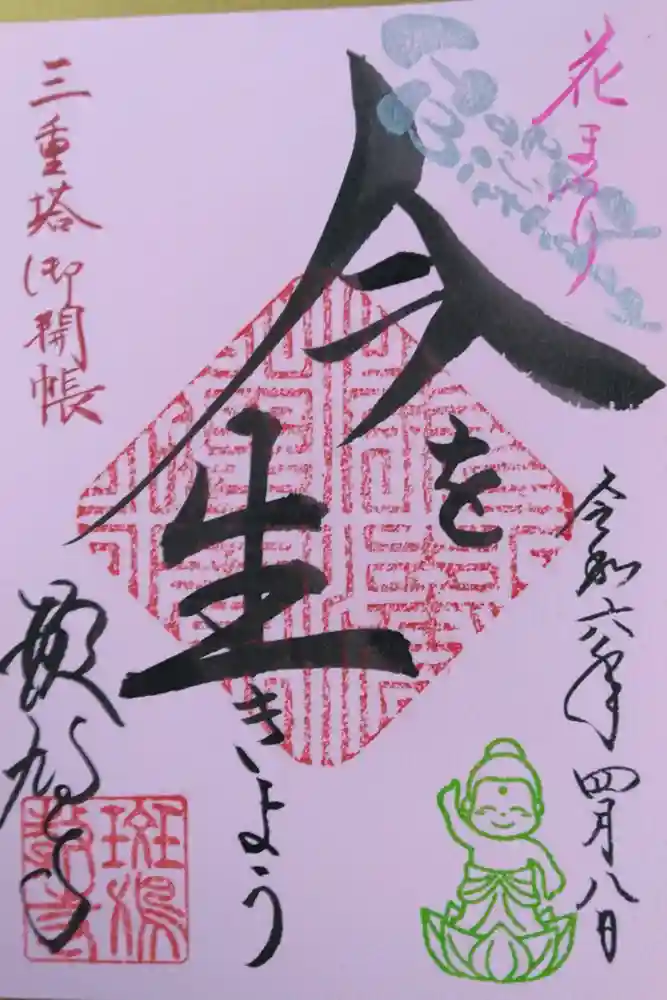 花まつり
今を
生きよう
三重塔御開帳
令和六年四月八日